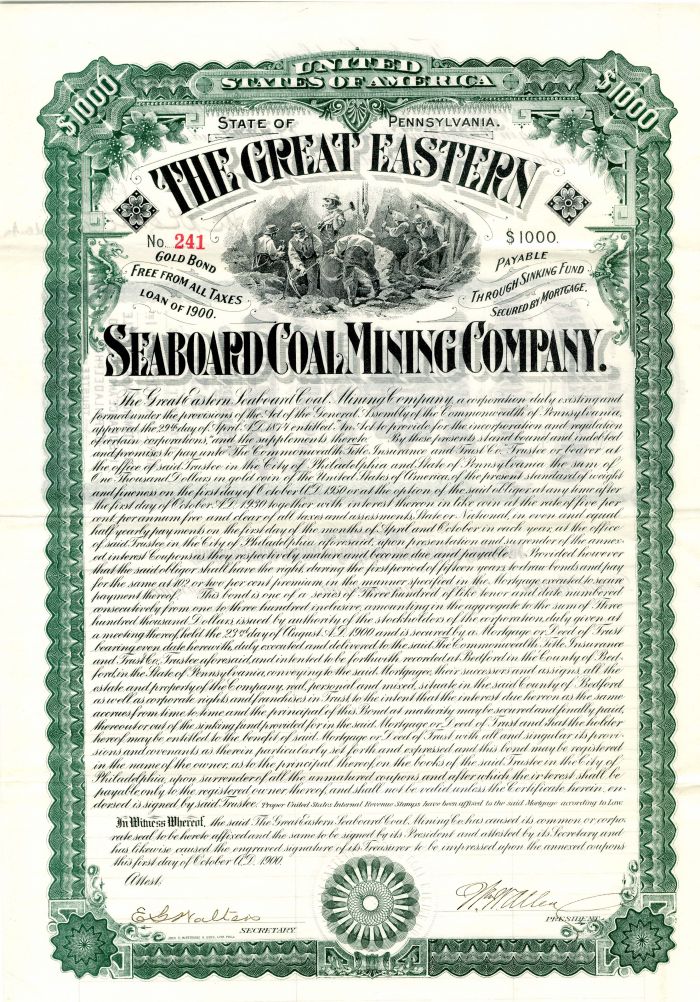 UNITED
STATES OF AMERICA
$1000
$1000
STATE OF PENNSYLVANIA.
THE GREAT EASTERN
No. 241
$1000.
GOLD BOND
FREE FROM ALL TAXES
LOAN OF 1900.
PAYABLE
THROUGH SINKING FUND
SECURED BY MORTGAGE.
SEABOARD COAL MINING COMPANY.
The Great Eastern Seaboard Coal Mining Company, a corporation duly existing and
formed under the provisions of the Act of the General Assembly of the Commonwealth of Pennsylvania,
approved the 29th day of April A.D. 1874 entitled "An Act to provide for the incorporation and regulation
of certain corporations," and the supplements thereto By these presents stand bound and indebted
and promises to pay unto The Commonwealth Title Insurance and Trust Co., Trustee or bearer at
the office of said Trustee in the City of Philadelphia and State of Pennsylvania the sum of
One Thousand Dollars in gold coin of the United States of America of the present standard of weight
and fineness on the first day of October A.D. 1950 or at the option of the said obligor at any time after
the first day of October A.D. 1930 together with interest thereon in like coin at the rate of five per
cent per annum free and clear of all taxes and assessments, State or National in even and equal
half yearly payments on the first day of the months of April and October in each year, at the office
of said Trustee in the City of Philadelphia aforesaid, upon presentation and surrender of the annex-
ed interest Coupons as they respectively mature and become due and payable Provided however
that the said obligor shall have the right, during the first period of fifteen years, to draw bonds and pay
for the same at 102 or two per cent premium in the manner specified in the Mortgage executed to secure
payment thereof. This bond is one of a series of Three hundred of like tenor and date numbered
consecutively from one to three hundred inclusive, amounting in the aggregate to the sum of Three
hundred thousand Dollars issued by authority of the stockholders of the corporation, duly given at
a meeting thereof held the 23rd day of August A.D. 1900 and is secured by a Mortgage or Deed of Trust
bearing even date herewith, duly executed and delivered to the said The Commonwealth Title Insurance
and Trust Co., Trustee aforesaid, and intended to be forthwith recorded at Bedford in the County of Bed-
ford in the State of Pennsylvania, conveying to the said Mortgagee, their successors and assigns, all the
estate and property of the Company, real, personal and mixed, situate in the said County of Bedford
as well as corporate rights and franchises in Trust to the intent that the interest due hereon as the same
accrues from time to time and the principal of this Bond at maturity may be secured and finally paid,
thereout or out of the sinking fund provided for in the said Mortgage or Deed of Trust and that the holder
hereof may be entitled to the benefit of said Mortgage or Deed of Trust with all and singular its provi-
sions and covenants as therein particularly set forth and expressed and this bond may be registered
in the name of the owner, as to the principal thereof, on the books of the said Trustee in the City of
Philadelphia, upon surrender of all the unmatured coupons and after which the interest shall be
payable only to the registered owner thereof, and shall not be valid unless the Certificate herein, en-
dorsed is signed by said Trustee. Proper United States Internal Revenue Stamps have been affixed to the said Mortgage according to Law.
In Witness Whereof, the said The Great Eastern Seaboard Coal Mining Co. has caused its common or corpo-
rate seal to be hereto affixed and the same to be signed by its President and attested by its Secretary and
has likewise caused the engraved signature of its Treasurer to be impressed upon the annexed coupons
this first day of October A.D. 1900.
Attest:
E G Walters
SECRETARY.
Allen
PRESIDENT.